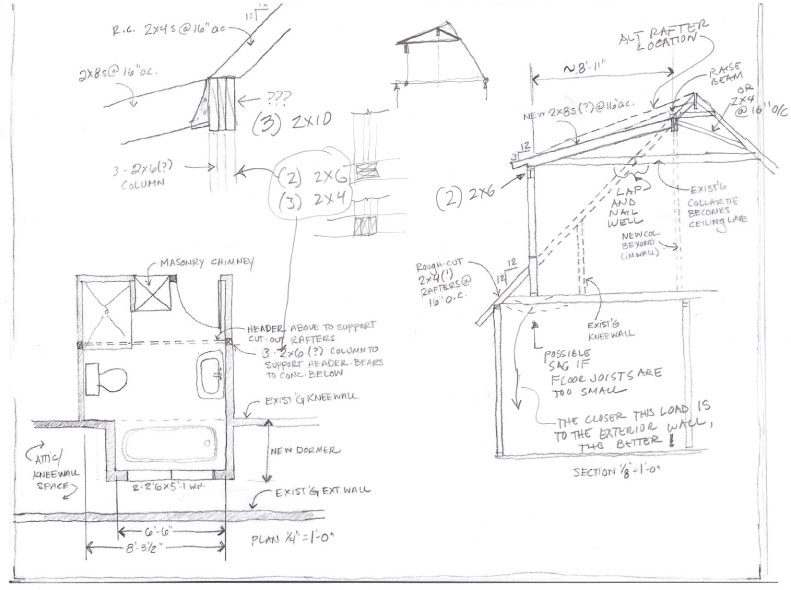 R.C. 2X4S @ 16" OC
12
12
2X8S @ 16" O.C.
???
(3) 2X10
3 - 2X6(?)
COLUMN
(2) 2X6
(3) 2X4
MASONRY CHIMNEY
HEADER ABOVE TO SUPPORT
CUT-OUT RAFTERS
3 - 2X6 (?) COLUMN TO
SUPPORT HEADER-BEARS
TO CONC. BELOW
EXIST'G KNEEWALL
ATTIC/
KNEEWALL
SPACE
NEW DORMER
2-2'6X5'-1 WN.
EXIST'G EXT WALL
6'-6"
8'-3 1/2"
PLAN 1/4"=1'-0"
ALT RAFTER
LOCATION
~8'-11"
RAISE
BEAM
OR
2X4
@ 16" O/C
NEW 2X8S(?)@16"OC.
12
3
(2) 2X6
LAP
AND
NAIL
WELL
EXIST'G
COLLAR TIE
BECOMES
CEILING LINE
NEW COL.
BEYOND
(IN WALL)
12
12
ROUGH-CUT
2X4(!)
RAFTERS @
16" O.C.
EXIST'G
KNEEWALL
POSSIBLE
SAG IF
FLOOR JOISTS ARE
TOO SMALL
THE CLOSER THIS LOAD IS
TO THE EXTERIOR WALL,
THE BETTER!
SECTION 1/8"=1'-0"